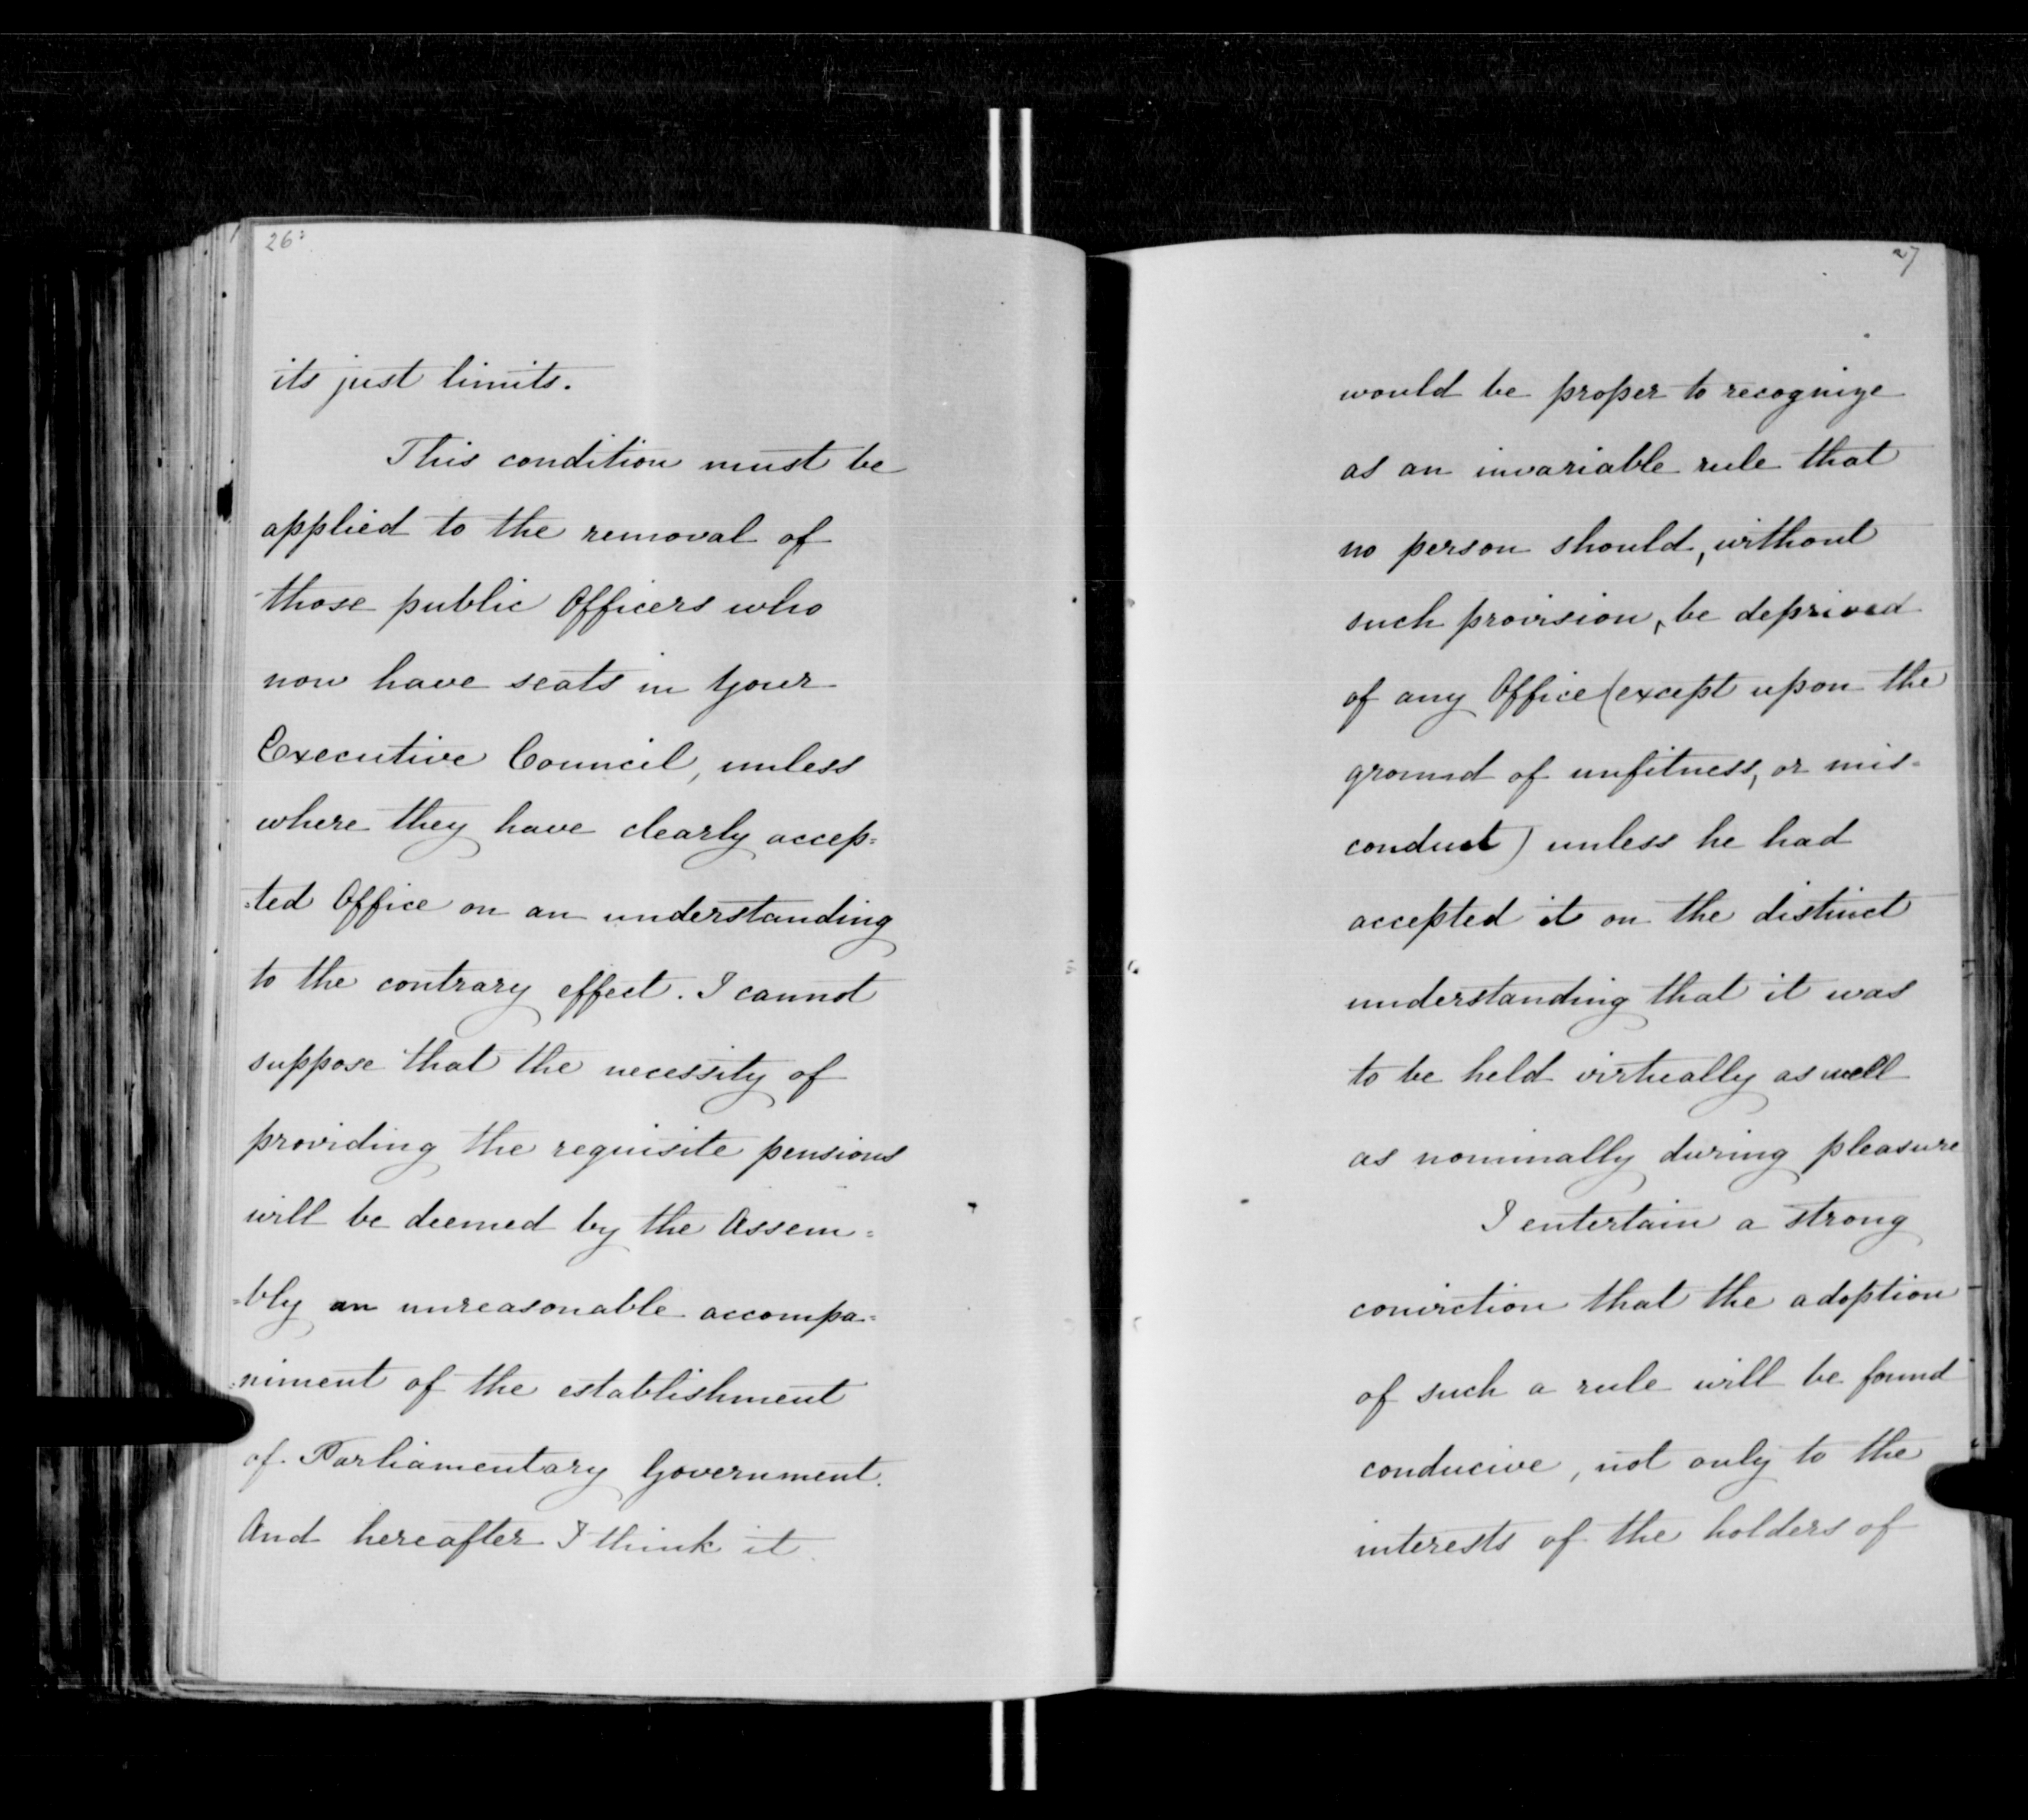 26:
its just limits.
This condition must be
applied to the removal of
those public Officers who
now have seats in Your
Executive Council, unless
where they have clearly accep=
=ted Office on an understanding
to the contrary effect. I cannot
suppose that the necessity of
providing the requisite pensions
will be deemed by the Assem=
=bly an unreasonable accompa=
=niment of the establishment
of Parliamentary Government.
And hereafter I think it
27
would be proper to recognize
as an invariable rule that
no person should, without
such provision, be deprived
of any Office (except upon the
ground of unfitness, or mis=
conduct) unless he had
accepted it on the distinct
understanding that it was
to be held virtually as well
as nominally during pleasure
I entertain a strong
conviction that the adoption
of such a rule will be found
conducive, not only to the
interests of the holders of